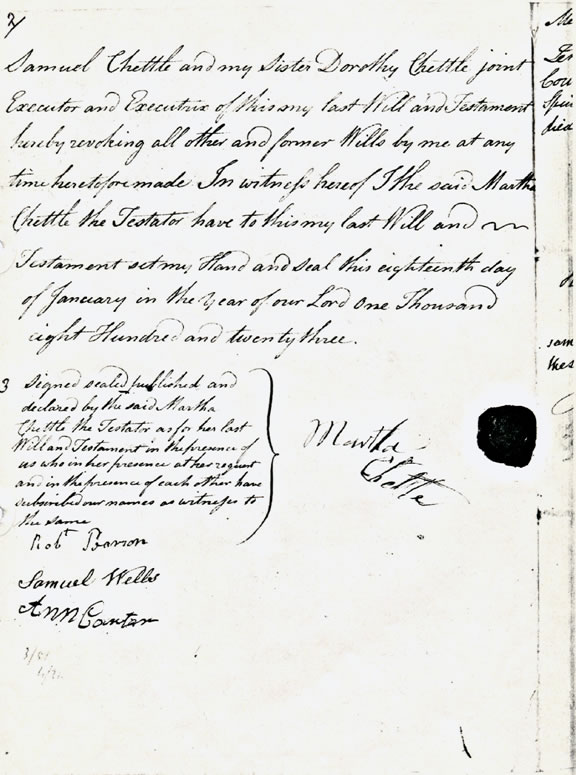 2/
Samuel Chettle and my Sister Dorothy Chettle joint
Executor and Executrix of this my last Will and Testament
hereby revoking all other and former Wills by me at any
time heretofore made In witness hereof I the said Martha
Chettle the Testator have to this my last Will and
Testament set my Hand and Seal this eighteenth day
of January in the Year of our Lord One Thousand
eight Hundred and twenty three.
3 Signed sealed published and
declared by the said Martha
Chettle the Testator as for her last
Will and Testament in the presence of
us who in her presence at her request
and in the presence of each other have
subscribed our names as witnesses to
the same
Martha
Chettle
Robt
Samuel Wells
Ann Canter
sam
thes